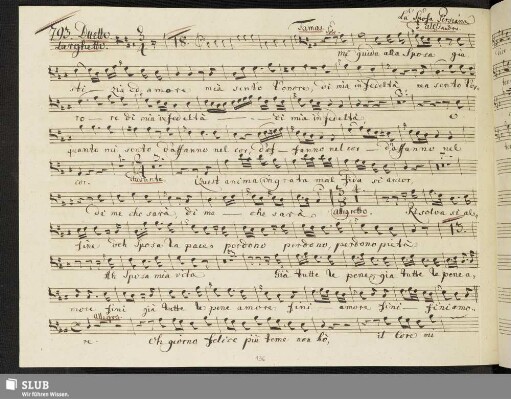 793. Duetto
Larghetto
Tamas
La Sposa Persiana
18.
mi guida alla Sposa gia
sti-zia ed amore mià sento l'onore, di mia infedeltà ma sento l'or-
ro-re di mia infedeltà di mia infedeltà, e
quanto mi sento d'affanno nel cor, d'af-fanno nel cor d'affanno nel
cor. Andante. Quest anima ingrata mal fida si ancor,
di me che sarà, di me che sarà. Allegretto. Risolva si al
fine deh sposa la pace perdono perdono, perdono pietà
Ah Sposa mia vita. Già tutte le pene, già tutte le pene a-
more finì già tutte le pene amore finì amore finì finì amo-
Allegro
re. Oh giorno felice più teme non hò, il core mi
136
SLUB
Wir führen Wissen.